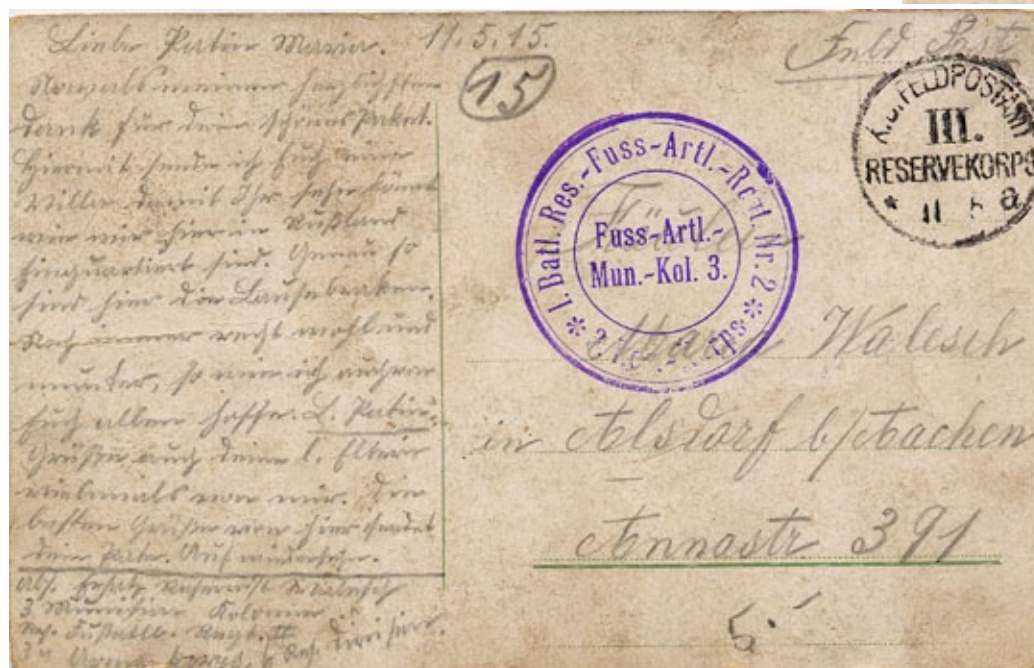 Liebe Patin Maria. 11.5.15.
Nochmals meinen herzlichsten
Dank für dein schönes Paket.
Hiermit sende ich Euch eine
Villa, damit Ihr sehen könnt
wie wir hier in Rußland
einquartiert sind. Genau so
sind hier die
immer recht wohl und
munter, so wie ich auch von
Euch allen hoffe. L. Patin
Grüße auch deine l. Eltern
vielmals von mir. Die
besten Grüße von hier sendet
dein Pate. Auf wiedersehn.
Abs. Ersatz Reservist Walesch
3 Munition Kolonne
Res. Fußartl. Regt. II
3. Armeekorps, Res. Division.
15
Feld Post
K.D. FELDPOSTAMT
III.
RESERVEKORPS
* 11 5 a
I. Batl. Res.-Fuss-Artl.-Regt. Nr. 2
Fuss-Artl.-
Mun.-Kol. 3.
Fräulein
Maria Walesch
in Alsdorf b/Aachen
Annastr 391
5